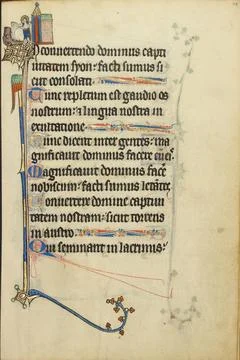 In convertendo dominus capti
uitatem syon: facti sumus si
cut consolati.
Tunc repletum est gaudio os
nostrum: & lingua nostra in
exultatione.
Tunc dicent inter gentes: ma
gnificauit dominus facere cu eis.
Magnificauit dominus face
nobiscum: facti sumus letates
Conuertere domine captiui
tatem nostram: sicut torrens
in austro.
Qui seminant in lacrimis: